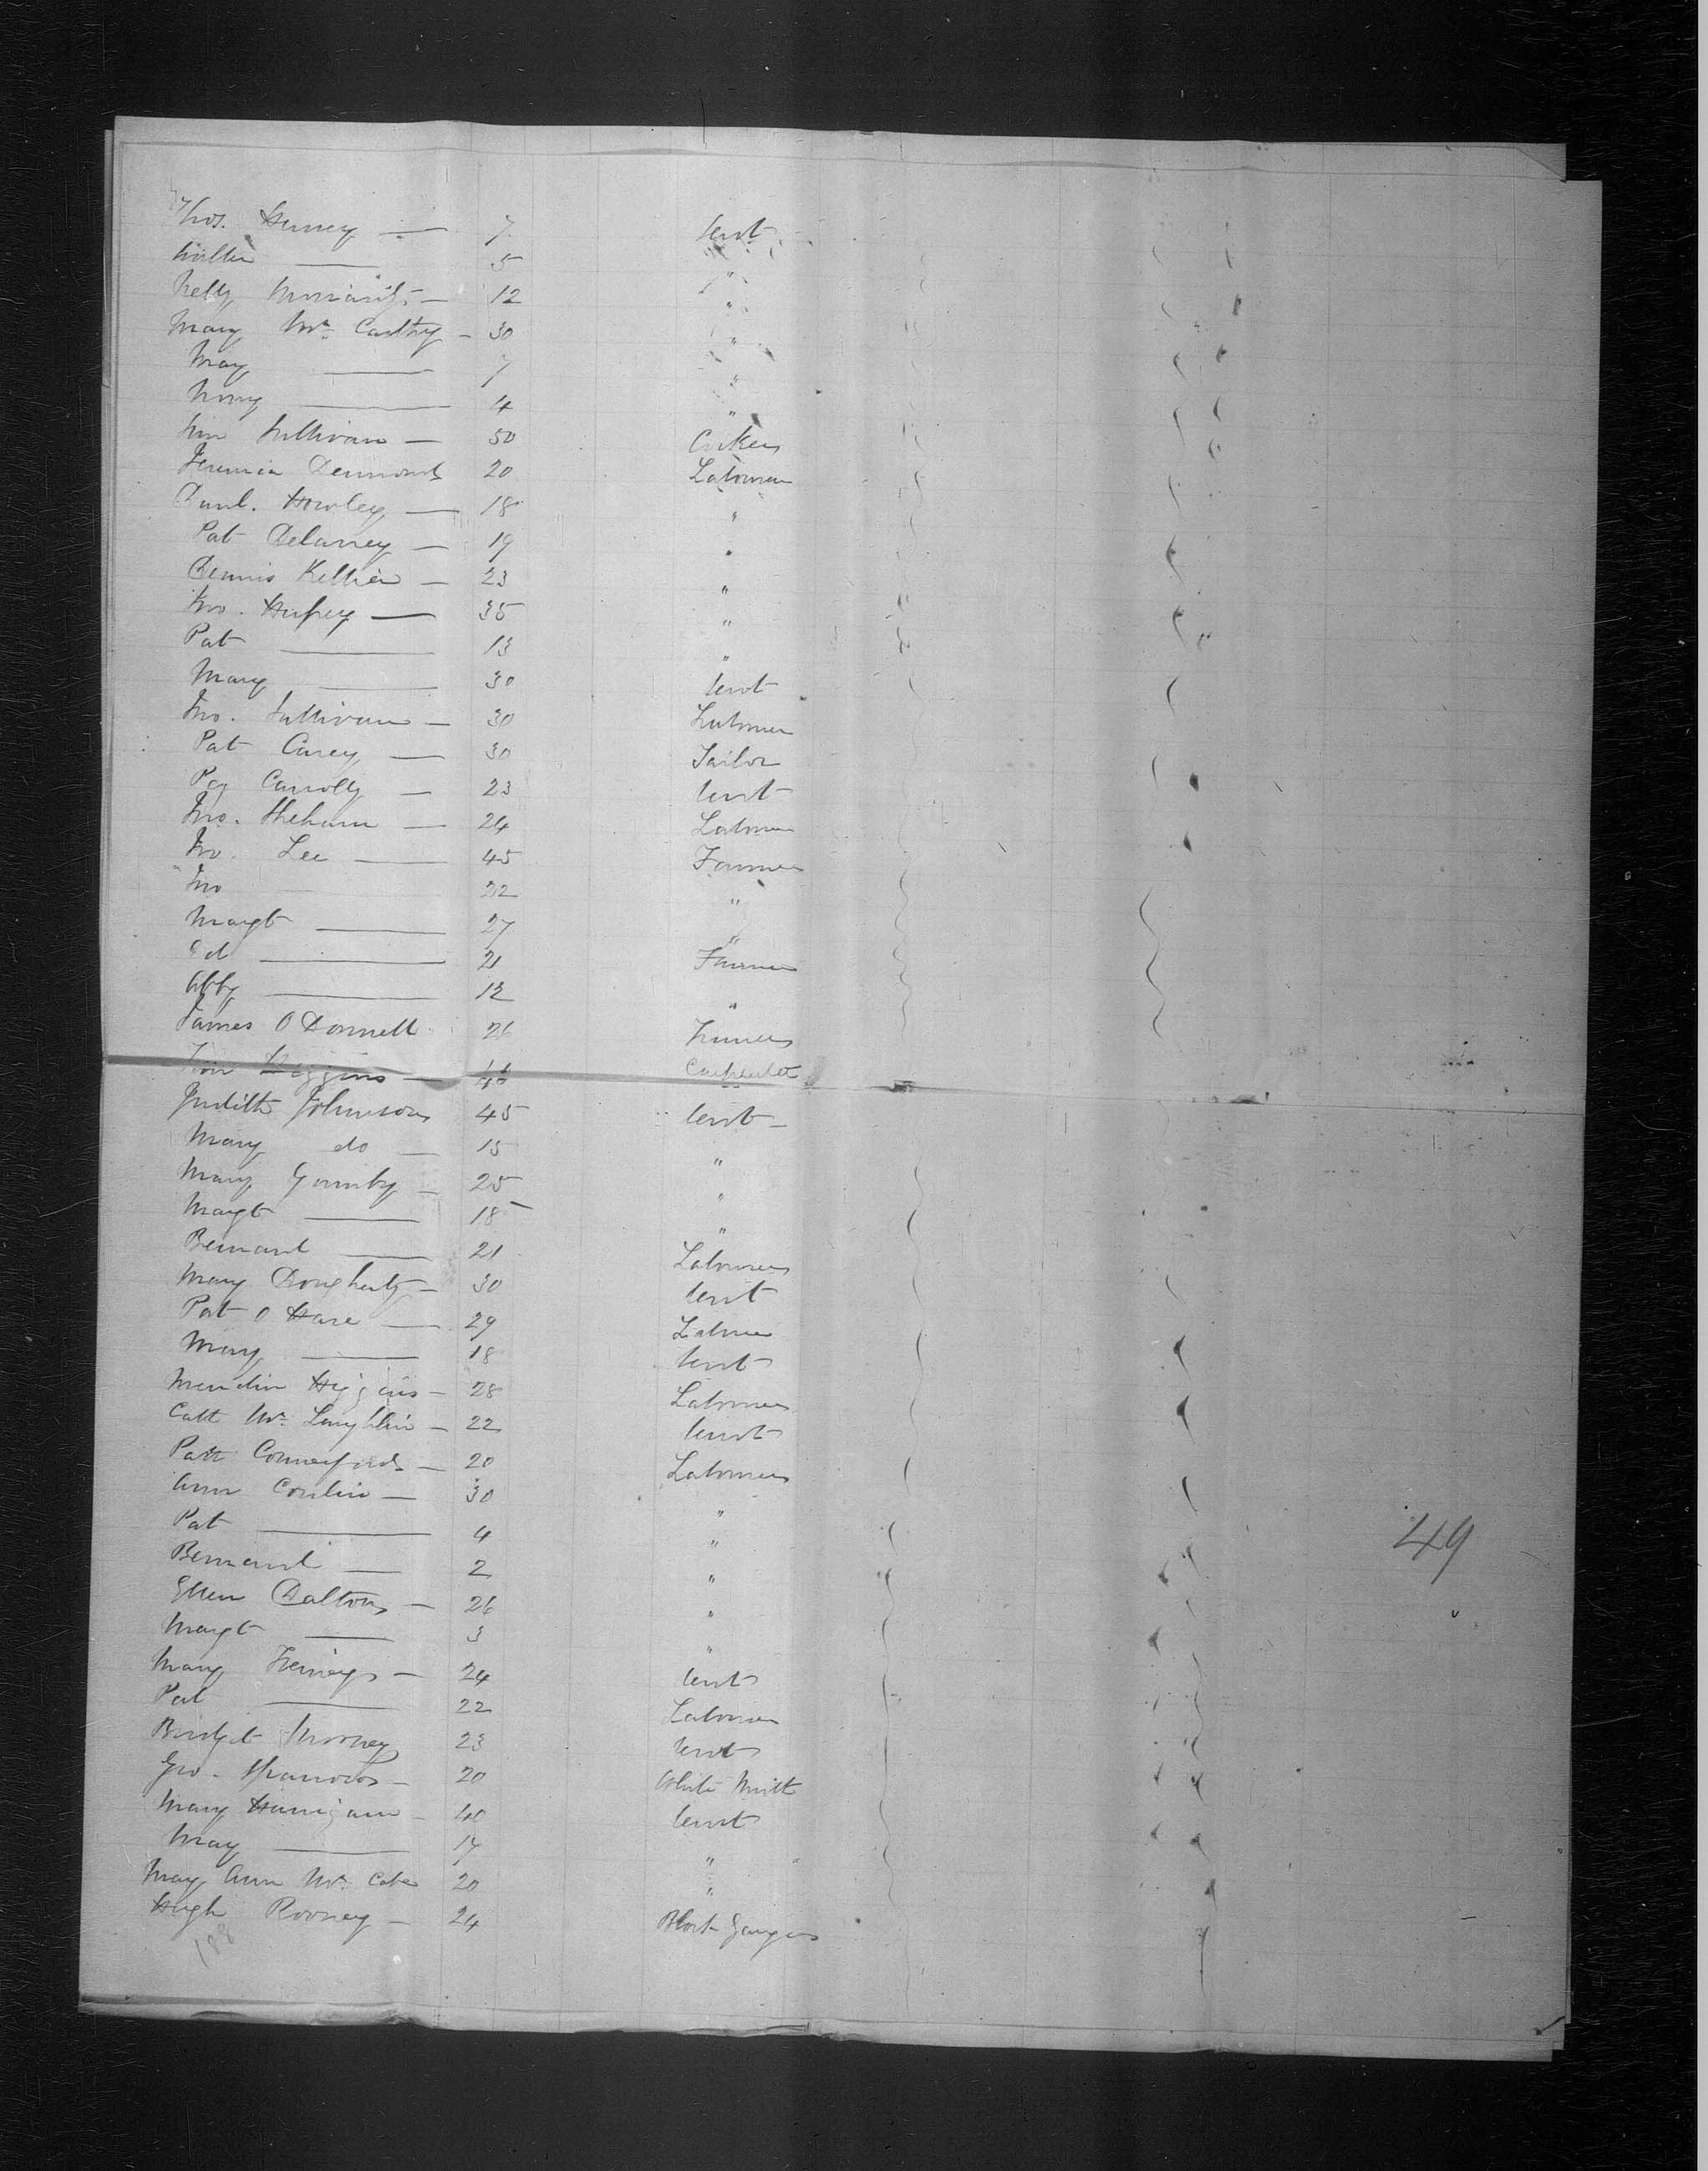 Thos. Hurney — 7 servt
Walter — 5 "
Nelly Moriarity — 12 "
Mary Mc Carthy — 30 "
May — 7 "
Nony — 4 "
Sullivan — 50
Jeremia Desmond 20 Labourer
Danl. Howley — 18 "
Pat Delaney — 19 "
Dennis Kellier — 23 "
Jno. — 35 "
Pat — 13 "
Mary — 30 servt
Jno. Sullivan — 30 Labourer
Pat Carey — 30 Tailor
Peg Connolly — 23 servt
Jno. Shehan — 24 Labourer
Jno. Lee — 45 Farmer
Jno 22 "
Margt — 27 "
Ed — 21 Farmer
Abby — 12 "
James O Donnell 26
Higgins — 46 Carpenter
Judith Johnson 45 servt —
Mary do — 15 "
Mary — 25 "
Margt — 18 "
Bernard — 21 Labourer
Mary Dougherty — 30 servt
Pat O Hare — 29 Labourer
Mary — 18 servt
Higgins — 28 Labourer
Cath Mc Laughlin — 22 servt
Patk Comerford — 20 Labourer
Ann Conlin — 30 "
Pat — 4 "
Bernard — 2 "
Ellen Dalton — 26 "
Margt — 3 "
Mary — 24 servt
Pat — 22 Labourer
Bridget Mooney 23 servt
Geo. — 20 White Smith
Mary Hannigan — 40 servt
May — 14 "
May Ann Mc Cabe 20 "
Hugh Rooney — 24
49
188